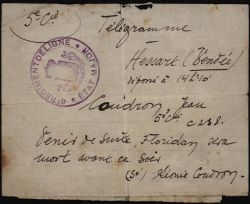 5e Cie
Télégramme
Hessart (Vendée)
déposé à 14h10
Coudron, Jean
5e Cie
C 238.
Venez de suite, Floridan sera
mort avant ce Soir
(Sé) Léonie Coudron.
ETAT MAJOR
DE LIGNE